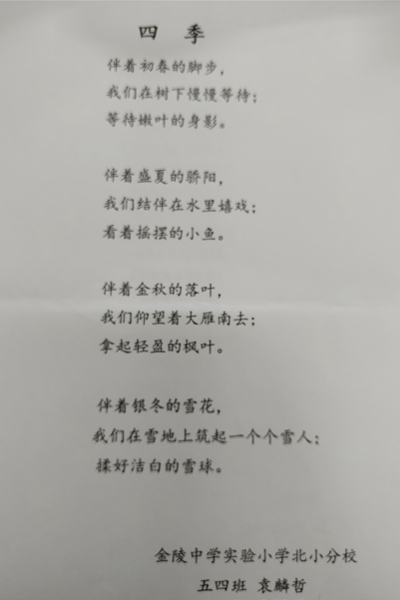 四 季
伴着初春的脚步，
我们在树下慢慢等待；
等待嫩叶的身影。
伴着盛夏的骄阳，
我们结伴在水里嬉戏；
看着摇摆的小鱼。
伴着金秋的落叶，
我们仰望着大雁南去；
拿起轻盈的枫叶。
伴着银冬的雪花，
我们在雪地上筑起一个个雪人；
揉好洁白的雪球。
金陵中学实验小学北小分校
五四班 袁麟哲